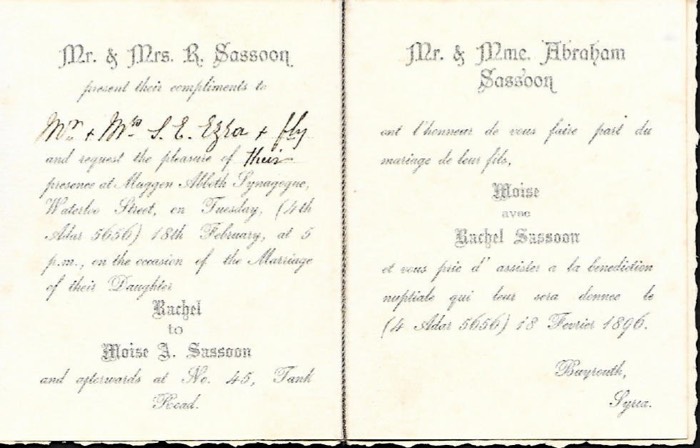 Mr. & Mrs. R. Sassoon
present their compliments to
Mr. & Mrs S. E. Ezra & fly
and request the pleasure of their
presence at Maggen Abboth Synagogue,
Waterloo Street, on Tuesday, (4th
Adar 5656) 18th February, at 5
p.m., on the occasion of the Marriage
of their Daughter
Rachel
to
Moise A. Sassoon
and afterwards at No. 45, Tank
Road.
Mr. & Mme. Abraham
Sassoon
ont l'honneur de vous faire part du
mariage de leur fils,
Moise
avec
Rachel Sassoon
et vous prie d' assister a la benediction
nuptiale qui leur sera donnee le
(4 Adar 5656) 18 Fevrier 1896.
Bayrouth,
Syria.